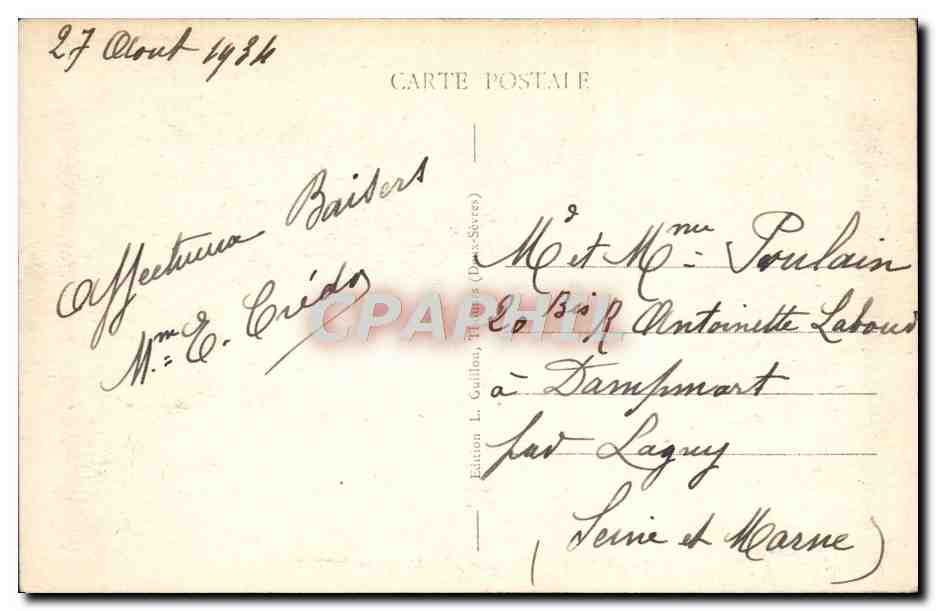 27 Aout 1934
CARTE POSTALE
Affectueux Baisers
Mme E. Crédo
Edition L. Guillon, (Deux-Sèvres)
Mr et Mme Poulain
20 Bis R Antoinette
à Dampmart
par Lagny
(Seine et Marne)
CPAPHIL